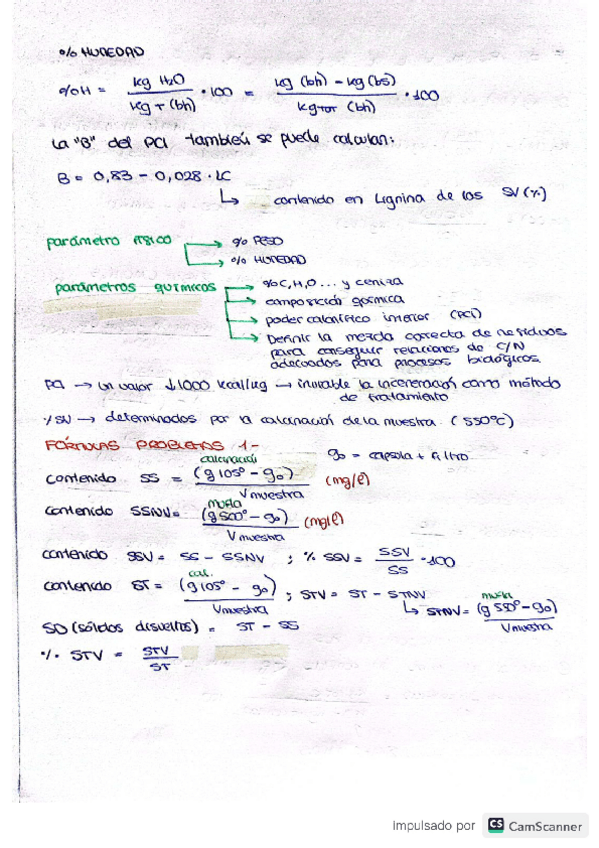 % HUMEDAD
%H = kg H₂O / kg T (bh) · 100 = kg (bh) - kg (bs) / kg TOT (bh) · 100
La "B" del PCI también se puede calcular:
B = 0,83 - 0,028 · LC
↳ contenido en Lignina de los SV (%)
parámetro físico → % PESO
→ % HUMEDAD
parámetros químicos → % C, H, O ... y ceniza
→ composición química
→ poder calorífico inferior (PCI)
→ Definir la mezcla correcta de residuos
para conseguir relaciones de C/N
adecuados para procesos biológicos.
PCI → un valor ↓1000 kcal/kg → inviable la incineración como método
de tratamiento
% SV → determinados por la calcinación de la muestra (550ºC)
FÓRMULAS PROBLEMAS 1-
g₀ = capsula + filtro
contenido SS = calcinación (g 105º - g₀) / V muestra (mg/l)
contenido SSNV = mufla (g 500º - g₀) / V muestra (mg/l)
contenido SSV = SS - SSNV ; % SSV = SSV / SS · 100
contenido ST = cal. (g 105º - g₀) / V muestra ; STV = ST - STNV
↳ STNV = mufla (g 550º - g₀) / V muestra
SD (sólidos disueltos) = ST - SS
% STV = STV / ST
Impulsado por CS CamScanner